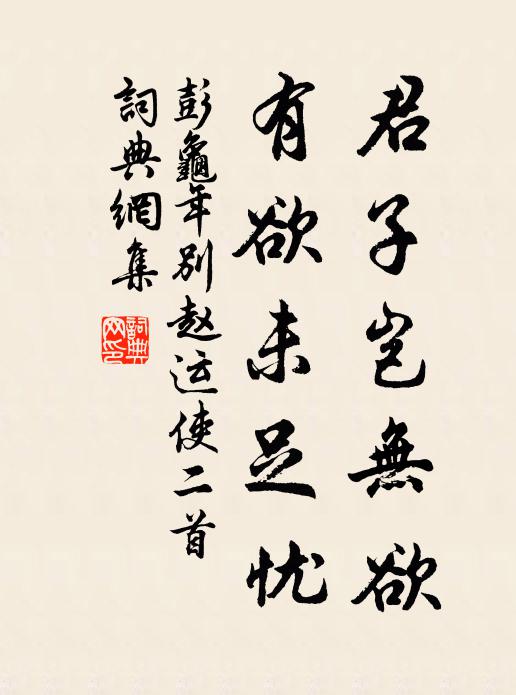 君子岂無欲
有欲未足忧
彭龜年别赵运使二首
詞典網集
詞典网印